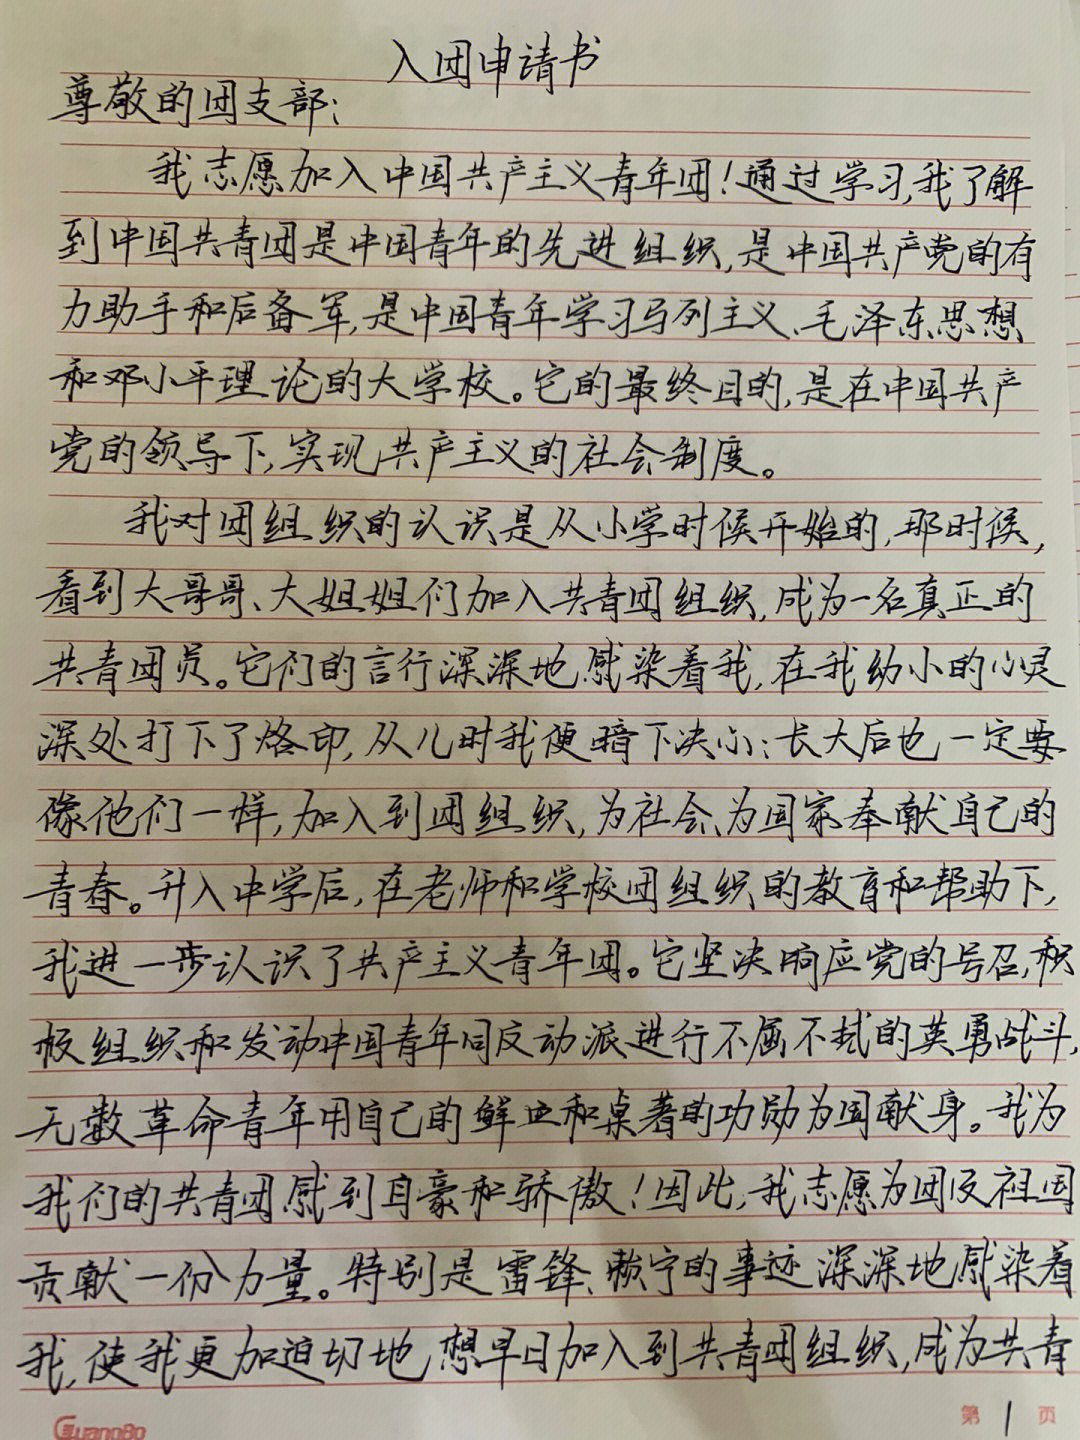 入团申请书
尊敬的团支部:
我志愿加入中国共产主义青年团!通过学习,我了解
到中国共青团是中国青年的先进组织,是中国共产党的有
力助手和后备军,是中国青年学习马列主义、毛泽东思想
和邓小平理论的大学校。它的最终目的,是在中国共产
党的领导下,实现共产主义的社会制度。
我对团组织的认识是从小学时候开始的,那时候,
看到大哥哥、大姐姐们加入共青团组织,成为一名真正的
共青团员。它们的言行深深地感染着我,在我幼小的心灵
深处打下了烙印,从儿时我便暗下决心:长大后也一定要
像他们一样,加入到团组织,为社会、为国家奉献自己的
青春。升入中学后,在老师和学校团组织的教育和帮助下,
我进一步认识了共产主义青年团。它坚决响应党的号召,积
极组织和发动中国青年同反动派进行不屈不挠的英勇战斗,
无数革命青年用自己的鲜血和卓著的功勋为国献身。我为
我们的共青团感到自豪和骄傲!因此,我志愿为团及祖国
贡献一份力量。特别是雷锋、赖宁的事迹深深地感染着
我,使我更加迫切地,想早日加入到共青团组织,成为共青
GuangBo
第 1 页